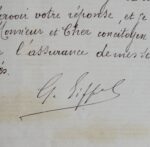 voir votre réponse, et je
Monsieur et Cher concitoyen
l'assurance de mes se
és.
G. Eiffel